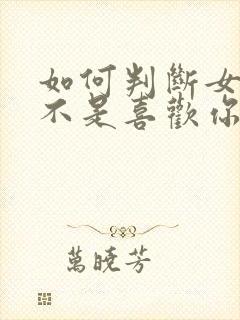 如何判斷女
不是喜歡你
萬曉芳